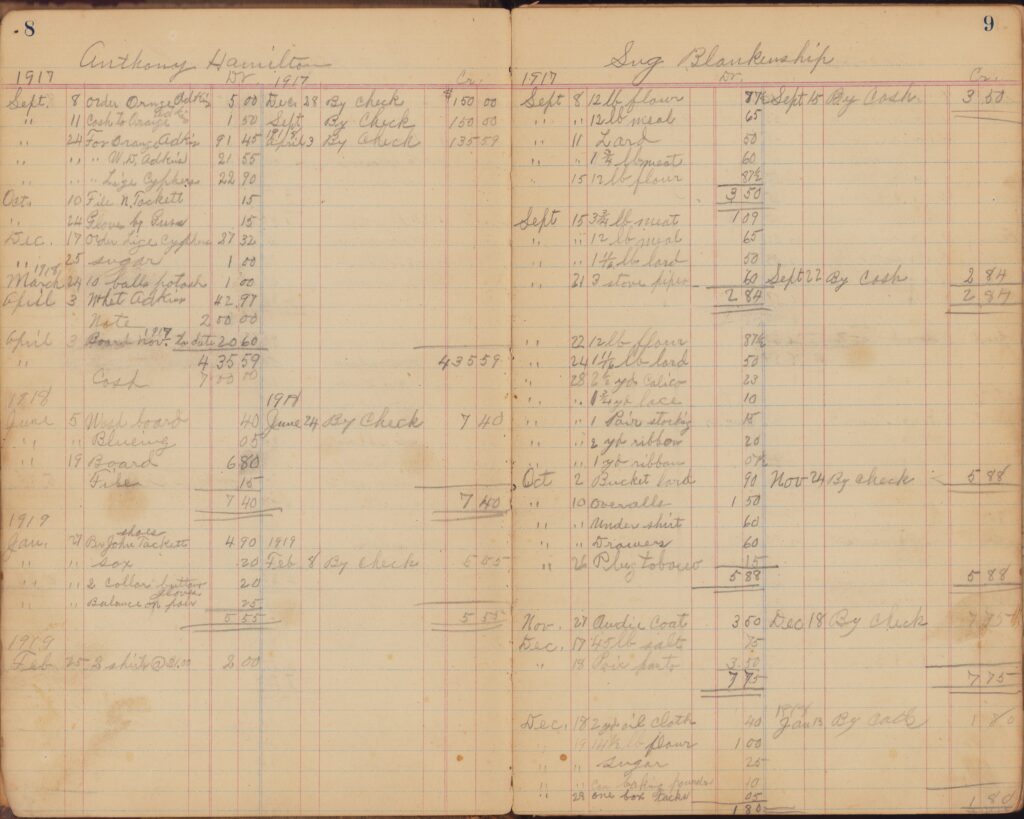 8
Anthony Hamilton
1917 Dr 1917 Cr.
Sept. 8 Order Orange Adkins 5 00 Dec 28 By Check $150 00
" 11 Cash to Orange Adkins 1 50 Sept By Check 150 00
" 24 For Orange Adkins 91 45 1918 April 3 By Check 135 59
" " " W.D. Adkins 21 55
" " " Lige Cyphers 22 90
Oct. 10 File N. Tackett 15
" 24 Glove by 15
Dec. 17 Order Lige Cyphers 27 32
" 25 Sugar 1 00
1918
March 24 10 balls potash 1 00
April 3 Whet Adkins 42.97
Note 200 00
April 3 Board Nov. 1917 to date 20 60
" 435 59 435 59
Cash 700 00
1918 1918
June 5 Wash board 40 June 24 By Check 7 40
" " Blueing 05
" 19 Board 6 80
File 15
7 40 7 40
1919
Jan. 27 By John Tackett shoes 4 90 1919
" " Sox 20 Feb 8 By Check 5 55
" " 2 Collar buttons 20
" " Balance on pair gloves 25
5 55 5 55
1919
Feb 25 2 shirts @ $1.00 2 00
9
Sug Blankenship
1917 Dr. Cr.
Sept 8 12 lb flour 87½ Sept 15 By Cash 3 50
" " 12 lb meal 65
" 11 Lard 50
" " 1¾ lb meat 60
" 15 12 lb flour 87½
3 50
Sept 15 3¾ lb meat 1 09
" " 12 lb meal 65
" " 1⅙ lb lard 50
" 21 3 stove pipes 60 Sept 22 By Cash 2 84
2 84 2 84
" 22 12 lb flour 87½
" 24 1⅙ lb lard 50
" 28 2½ yd Calico 23
" " 1¾ yd lace 10
" " 1 Pair stocking 15
" " 2 yd ribbon 20
" " 1 yd ribbon 07½
Oct 2 Bucket lard 90 Nov 24 By Check 5 88
" 10 Overalls 1 50
" " Under shirt 60
" " Drawers 60
" 26 Plug tobacco 15
5 88 5 88
Nov. 27 Coat 3 50 Dec 18 By Check 7 75
Dec. 17 45 lb salt 75
" 18 Pair pants 3.50
7 75 7 75
Dec. 18 2 yd oil cloth 40 1918 Jan 13 By Cash 1 80
" 19 lb flour 1 00
" " Sugar 25
" " Can baking powder 10
" 29 one box tacks 05
1 80 1 80